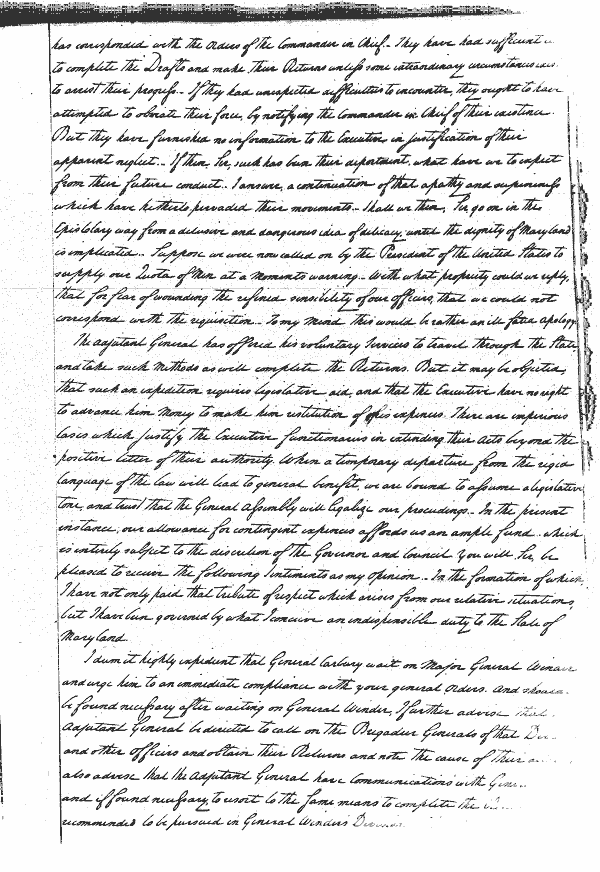 has corresponded with the Orders of the Commander in Chief. - They have had sufficient
to complete the Drafts and make their Returns unless some extraordinary circumstances
to arrest their progress. - If they had unexpected difficulties to encounter, they ought to have
attempted to obviate their force, by notifying the Commander in Chief of their existence.
But they have furnished no information to the Executive in justification of their
apparent neglect. - If then, Sir, such has been their deportment, what have we to expect
from their future conduct. I answer, a continuation of that apathy and supineness
which have hitherto pervaded their movements. - Shall we then, Sir, go on in the
Epistolary way from a delusive and dangerous idea of delicacy, until the dignity of Maryland
is implicated. Suppose we were now called on by the President of the United States to
supply our Quota of Men at a Moments warning. - With what propriety could we reply,
that for fear of wounding the refined sensibility of our officers, that we could not
correspond with the requisition. - To my Mind this would be rather an ill fated apology.
The Adjutant General has offered his voluntary Services to travel through the State
and take such Methods as will complete the Returns. But it may be objected,
that such an expedition requires legislative aid, and that the Executive have no right
to advance him Money to make him restitution of his expences. There are imperious
cases which justify the Executive functionaries in extending their Acts beyond the
positive letter of their authority. When a temporary departure from the rigid
language of the law will lead to general benefit, we are bound to assume a legislative
tone, and trust that the General Assembly will legalize our proceedings. - In the present
instance, our allowance for contingent expences affords us an ample fund which
is entirely subject to the discretion of the Governor and Council. You will Sir, be
pleased to receive the following Sentiments as my opinion. - In the formation of which
I have not only paid that tribute of respect which arises from our relative situations,
but I have been governed by what I conceive an indispensible duty to the State of
Maryland.
I deem it highly expedient that General Carbery wait on Major General Winder
and urge him to an immediate compliance with your general orders. And should
be found necessary after waiting on General Winder, I further advise that
Adjutant General be directed to call on the Brigadier Generals of that
and other Officers and obtain their Returns and note the cause of their
also advise that the Adjutant General have Communications with
and if found necessary, to resort to the same means to complete the
recommended to be pursued in General Winders Division.